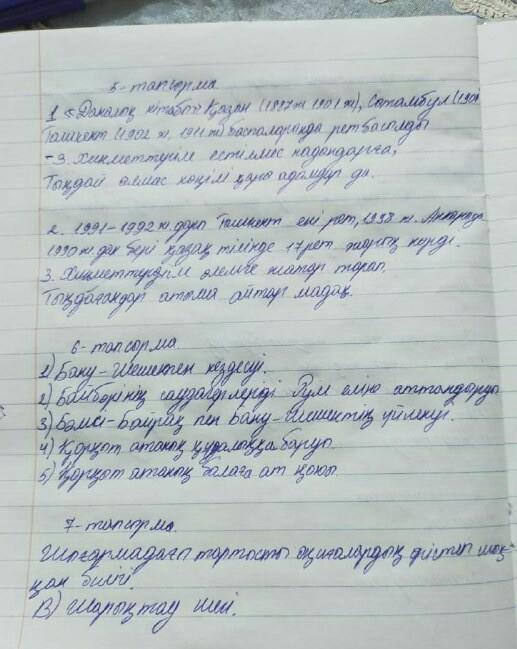 5-тапсырма
1 «Даналық кітабы» Қазан (1897ж 1901ж), Стамбул (1901
Ташкент (1902 ж, 1911 ж) баспаларында рет басылды
- 3. Хикметтүгім естілмес надандарға,
Тыңдай алмас көңілі қара адамдар да.
2. 1991-1992 ж. дары Ташкент екі рет, 1998 ж. Анкарада
1990 ж. дан бері қазақ тілінде 17 рет жарық көрді.
3. Хикметтерүгім әлемге жатар тарап
Тыңдағандар атыма айтар мадақ.
6-тапсырма
1) Бану-Шешекпен кездесуі.
2) Байбөрінің саудагерлерді Рум еліне аттандыруы
3) Бәмсі-Байрақ пен Бану-Шешектің үйленуі.
4) Қорқыт атаның құдалыққа баруы
5) Қорқыт атаның балаға ат қоюы.
7-тапсырма.
Шығармадағы тартысты оқиғалардың өрістеп шық-
қан билігі.
В) Шарықтау шегі.